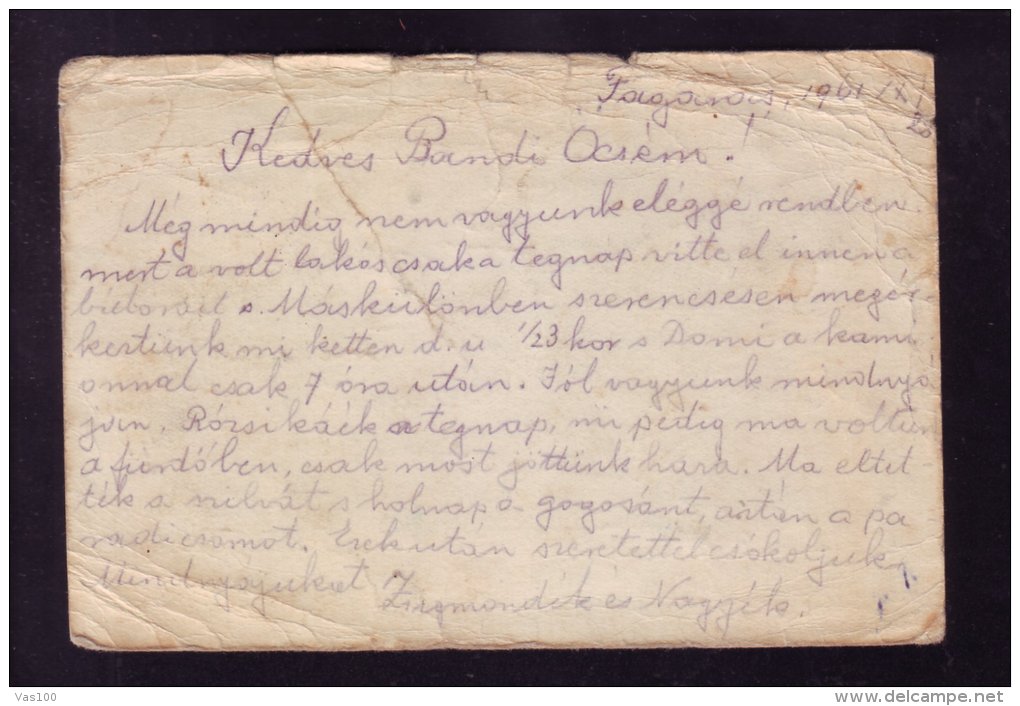 Fagaras, 1961/XI
20
Kedves Bandi Öcsém!
Még mindig nem vagyunk eléggé rendben
mert a volt lakós csak a tegnap vitte el innen a
bútorait s. Máskülönben szerencsésen megér-
keztünk mi ketten d. u. 1/2 3 kor s Domi a kami
onnal csak 7 óra után. Jól vagyunk mindnyá
jan. Rózsikáék a tegnap, mi pedig ma voltun
a fürdőben, csak most jöttünk haza. Ma eltet-
ték a szilvát s holnap a gogosánt, aztán a pa
radicsomot. Ezek után szeretettel csókoljuk
Mindnyájukat Zsigmondék és Nagyék.
Vas100
http://www.delcampe.net